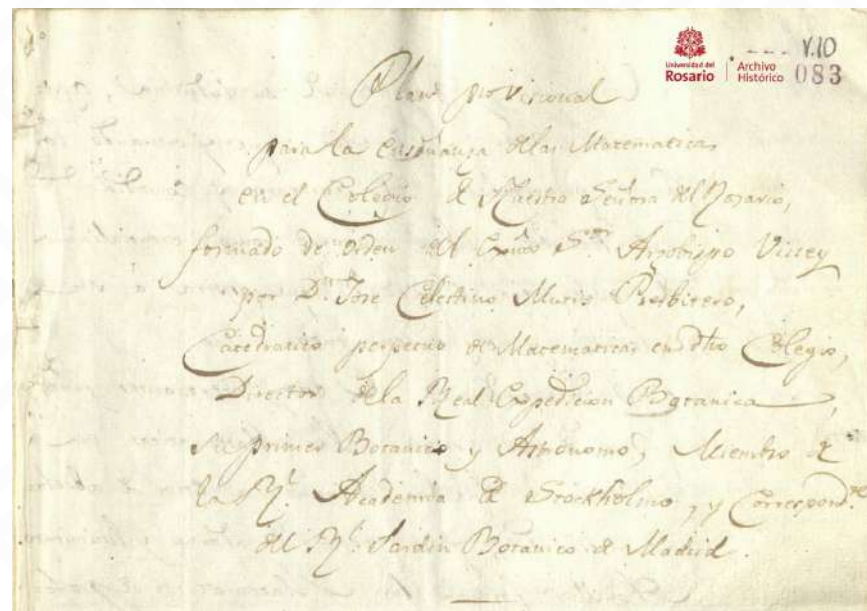 V.10
Universidad del
Rosario
Archivo
Histórico
083
Plan provisional
para la enseñanza de las Matematicas
en el Colegio de Nuestra Señora del Rosario,
formado de orden del Exmo Sor Arzobispo Virrey
por Dn Jose Celestino Mutis Presbitero,
Catedratico perpetuo de Matematicas en dho Colegio,
Director de la Real Expedicion Botanica,
su primer Botanico y Astronomo, Miembro de
la Rl. Academia de Stockholmo, y Correspond.te
del Rl. Jardin Botanico de Madrid.